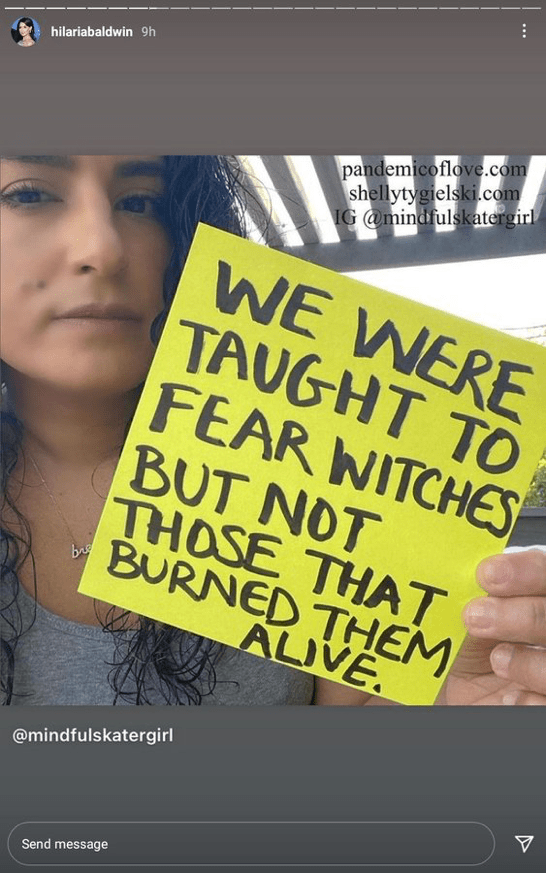 hilariabaldwin 9h
pandemicoflove.com
shellytygielski.com
IG @mindfulskatergirl
WE WERE
TAUGHT TO
FEAR WITCHES
BUT NOT
THOSE THAT
BURNED THEM
ALIVE.
@mindfulskatergirl
Send message